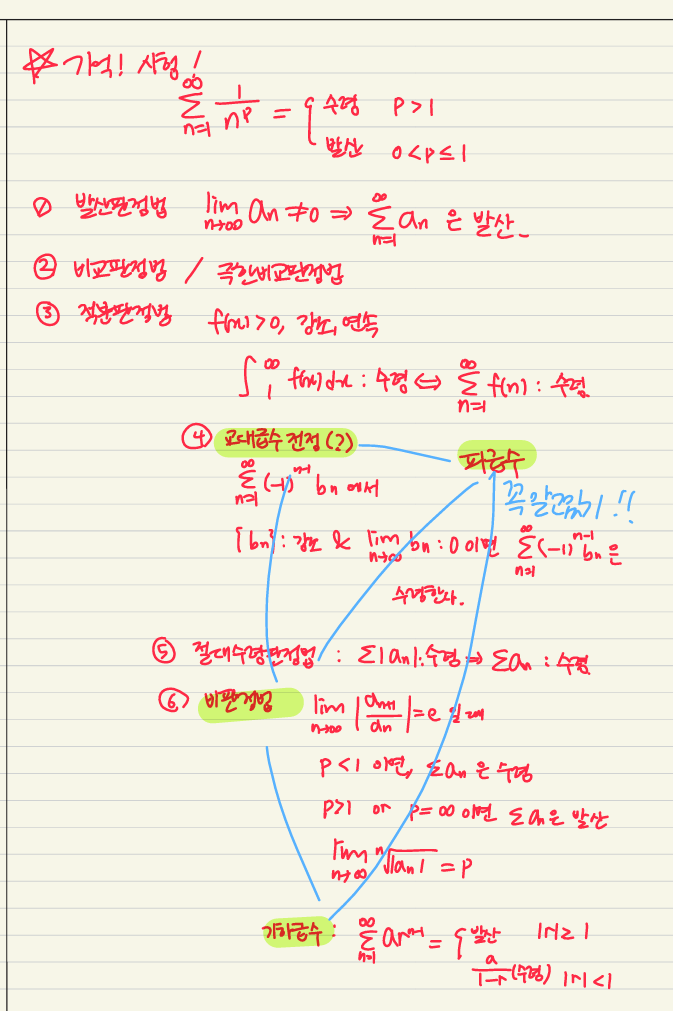 ☆ 기억! 시험!
∞∑n=1 1/n^p = { 수렴 p > 1
발산 0 < p ≤ 1
① 발산판정법 lim n→∞ an ≠ 0 ⇒ ∞∑n=1 an 은 발산.
② 비교판정법 / 극한비교판정법
③ 적분판정법 f(x) > 0, 감소, 연속
∫1^∞ f(x)dx : 수렴 ⇔ ∞∑n=1 f(n) : 수렴
④ 교대급수 판정(?) 파급수
∞∑n=1 (-1)^n-1 bn 에서
꼭 알긴!!
{bn} : 감소 & lim n→∞ bn : 0 이면 ∞∑n=1 (-1)^n-1 bn 은
수렴한다.
⑤ 절대수렴판정법 : Σ|an| : 수렴 ⇒ Σan : 수렴
⑥ 비판정법 lim n→∞ |an+1/an| = e 일 때
p < 1 이면, Σan 은 수렴
p > 1 or p = ∞ 이면 Σan 은 발산
lim n→∞ ⁿ√|an| = p
기하급수 : ∞∑n=1 ar^n-1 = { 발산 |r| ≥ 1
a/1-r (수렴) |r| < 1